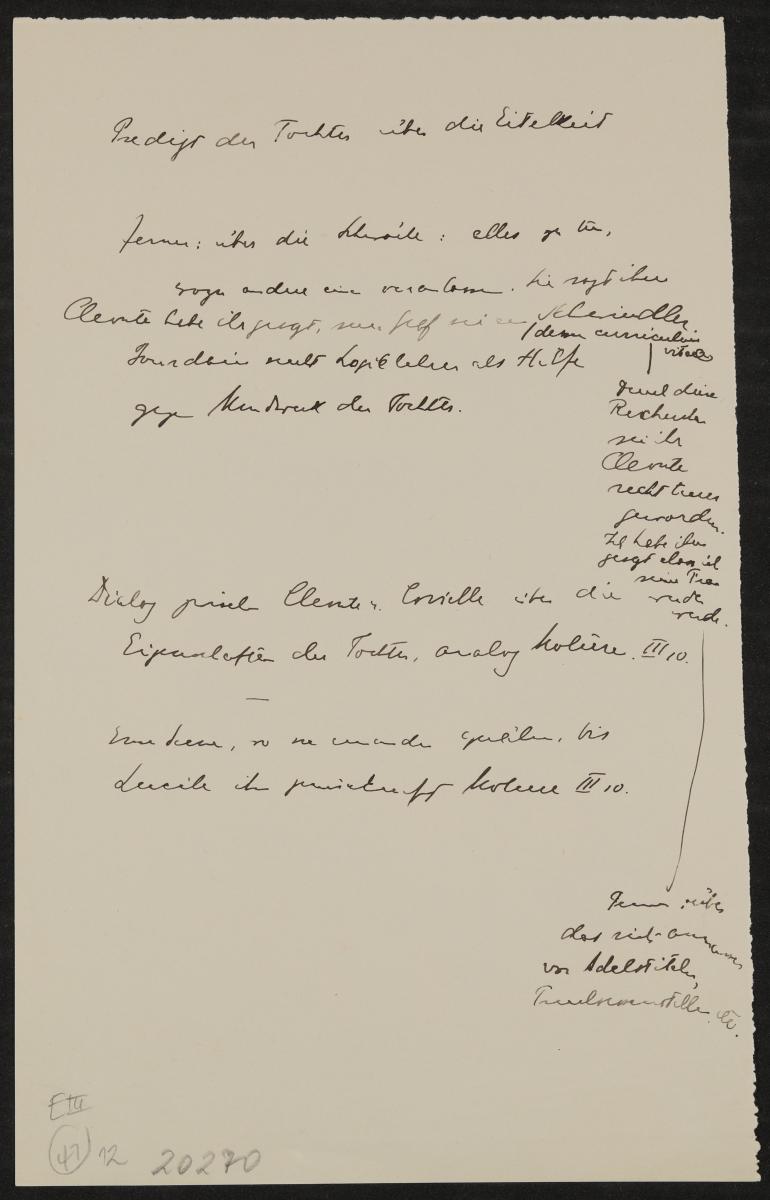 Predigt der Tochter über die Eitelkeit
Ferner: über die Schwäche: alles zu tun,
wozu andere einen veranlassen. Sie sagt ihm
Cleonte habe ihr gesagt, sein Graf sei ein Schwindler
/ denn curriculum
vitae
Jourdain sucht Logiklehrer als Hilfe
gegen Mundwerk der Tochter.
Durch diese
Recherchen
sei ihr
Cleonte
recht teuer
geworden.
Ich habe ihm
gesagt dass ich
seine Frau
werden
werde.
Dialog zwischen Cleonte u. Covielle über die
Eigenschaften der Tochter, analog Molière. III 10.
—
Eine Scene, wo sie einander quälen, bis
Lucile ihn zurückruft Molière III 10.
Ferner: über
das sich
von Adelstiteln,
etc.
E III
47 12 20270